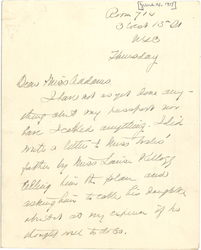 [June 14, 1917]
Room 710
3 West 13th St
Thursday
Dear Miss Addams
I have not as yet done any-
thing about my passport nor
have I cabled anything. I did
write a letter to Miss
father by Miss Louise
telling him the plan and
asking him to cable his daughter
at my expense if he
thought well to do so.